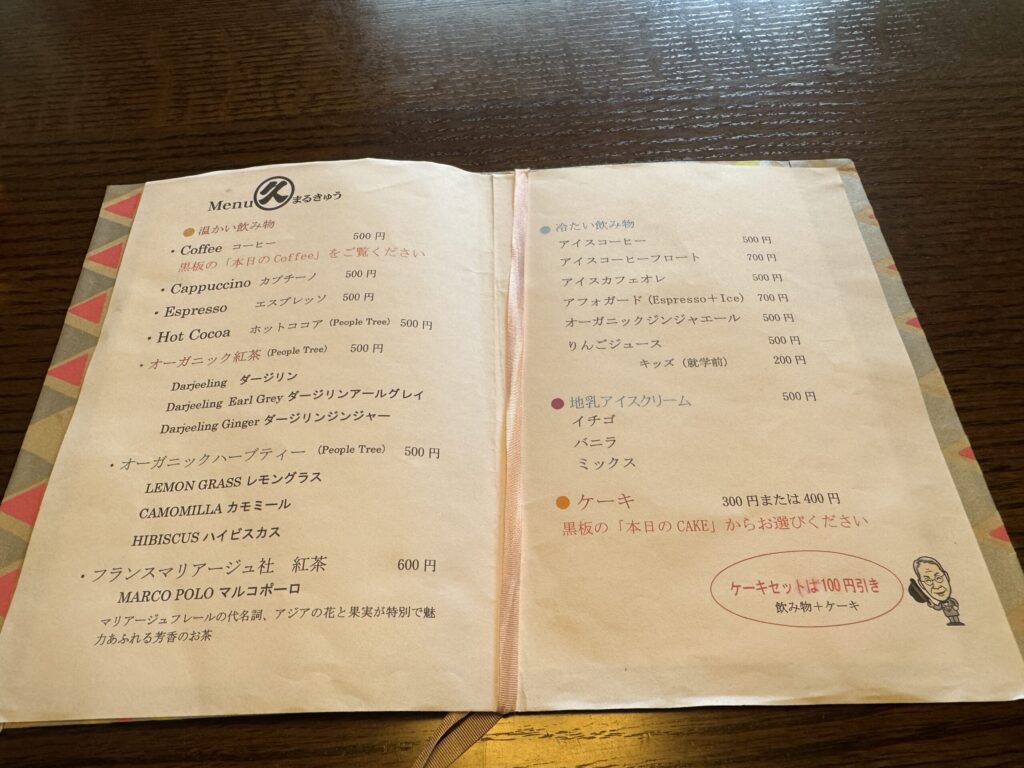 Menu 久 まるきゅう
●温かい飲み物
・Coffee コーヒー 500円
黒板の「本日のCoffee」をご覧ください
・Cappuccino カプチーノ 500円
・Espresso エスプレッソ 500円
・Hot Cocoa ホットココア (People Tree) 500円
・オーガニック紅茶 (People Tree) 500円
Darjeeling ダージリン
Darjeeling Earl Grey ダージリンアールグレイ
Darjeeling Ginger ダージリンジンジャー
・オーガニックハーブティー (People Tree) 500円
LEMON GRASS レモングラス
CAMOMILLA カモミール
HIBISCUS ハイビスカス
・フランスマリアージュ社 紅茶 600円
MARCO POLO マルコポーロ
マリアージュフレールの代名詞、アジアの花と果実が特別で魅
力あふれる芳香のお茶
●冷たい飲み物
アイスコーヒー 500円
アイスコーヒーフロート 700円
アイスカフェオレ 500円
アフォガード (Espresso+Ice) 700円
オーガニックジンジャエール 500円
りんごジュース 500円
キッズ (就学前) 200円
●地乳アイスクリーム 500円
イチゴ
バニラ
ミックス
●ケーキ 300円または400円
黒板の「本日のCAKE」からお選びください
ケーキセットは100円引き
飲み物+ケーキ